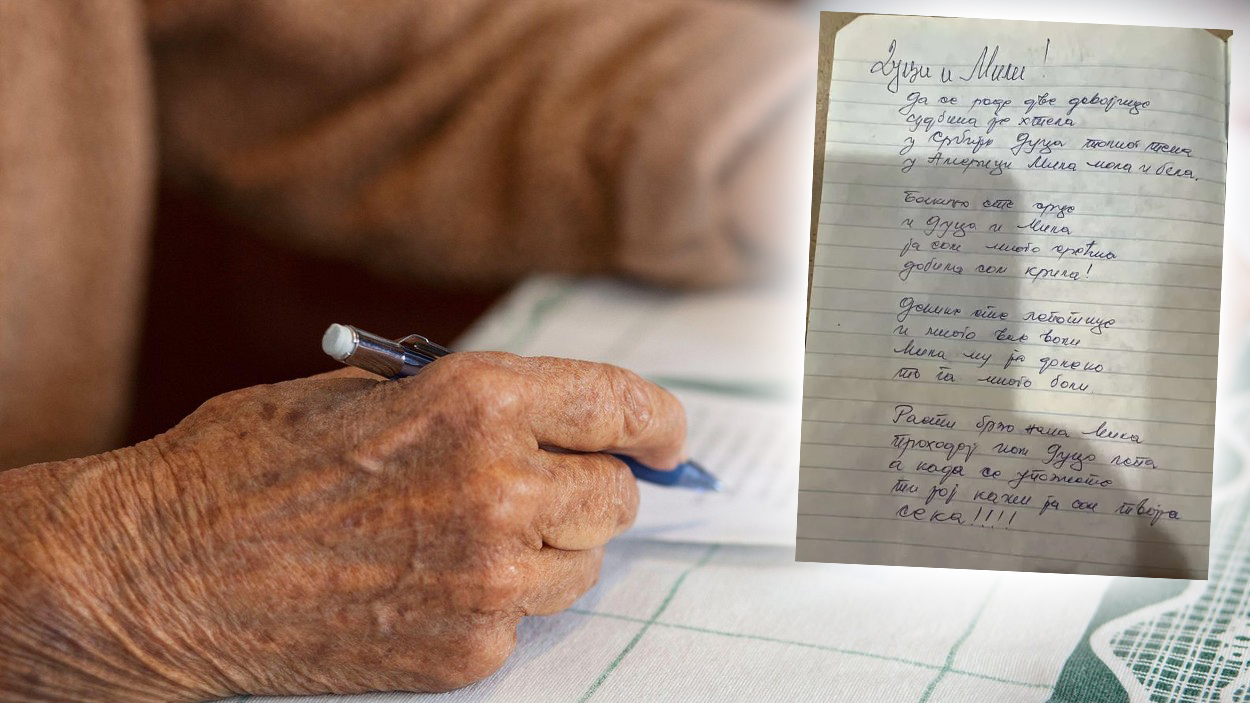 Дуци и Мили!
Да се роде две девојчице
судбина је хтела
у Србији Дуца
у Америци Мила мала и бела.
сте срце
и Дуца и Мила
ја сам много срећна
добила сам крила!
сте лепотице
и много вас воли
Мила му је далеко
то га много боли
Расти брзо наша Мила
проходај нам Дуцо лепа
а када се упознате
ти јој кажи ја сам твоја
сека!!!!